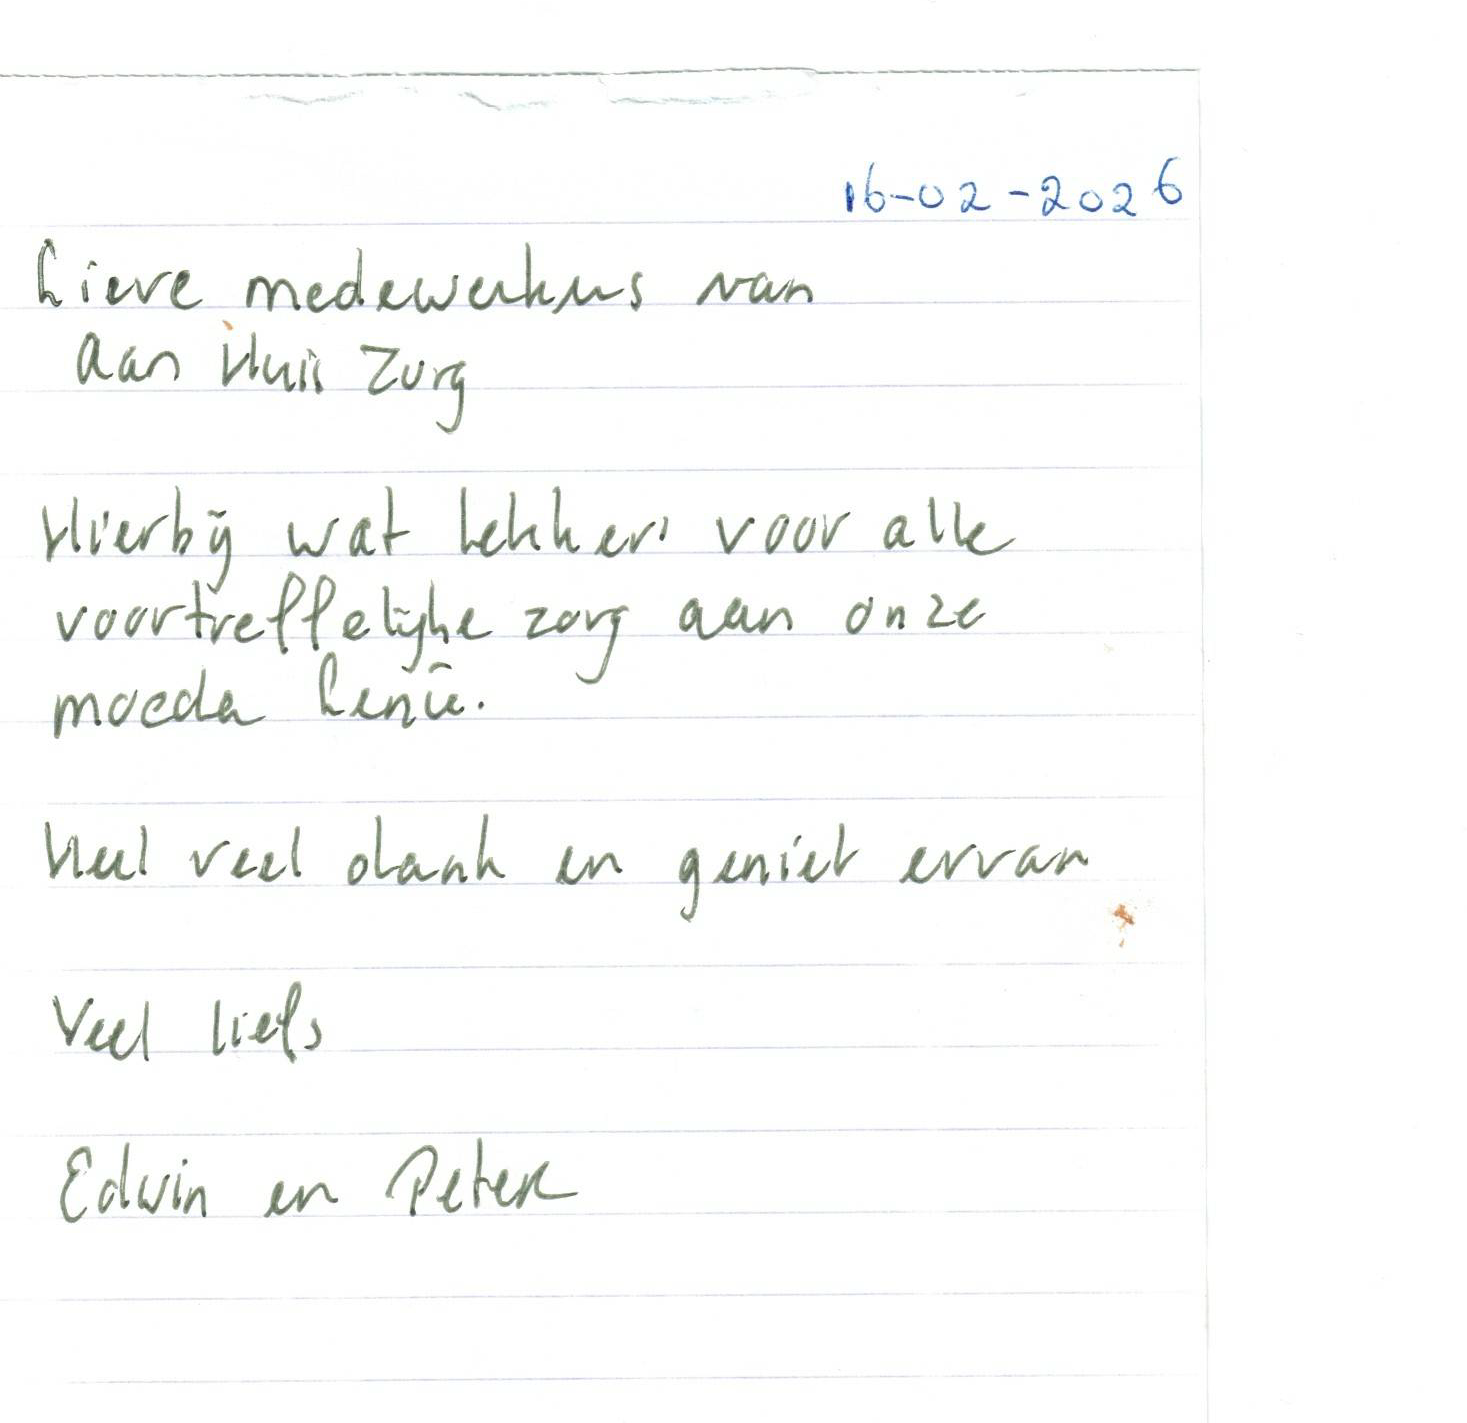 16-02-2026
Lieve medewerkers van
Aan Huis Zorg
Hierbij wat lekkers voor alle
voortreffelijke zorg aan onze
moeder Lenie.
Heel veel dank en geniet ervan
Veel liefs
Edwin en Peter